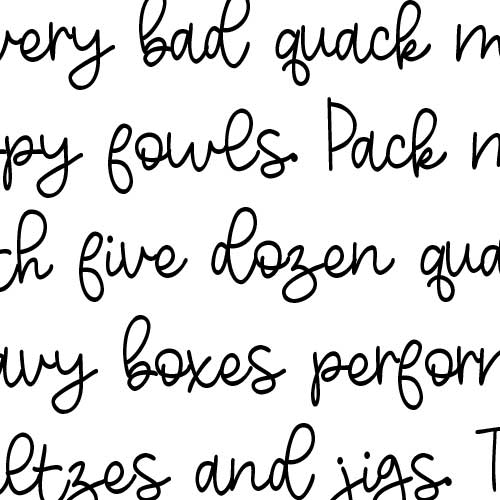 very bad quack m
py fowls. Pack m
th five dozen qua
avy boxes perform
altzes and jigs. T